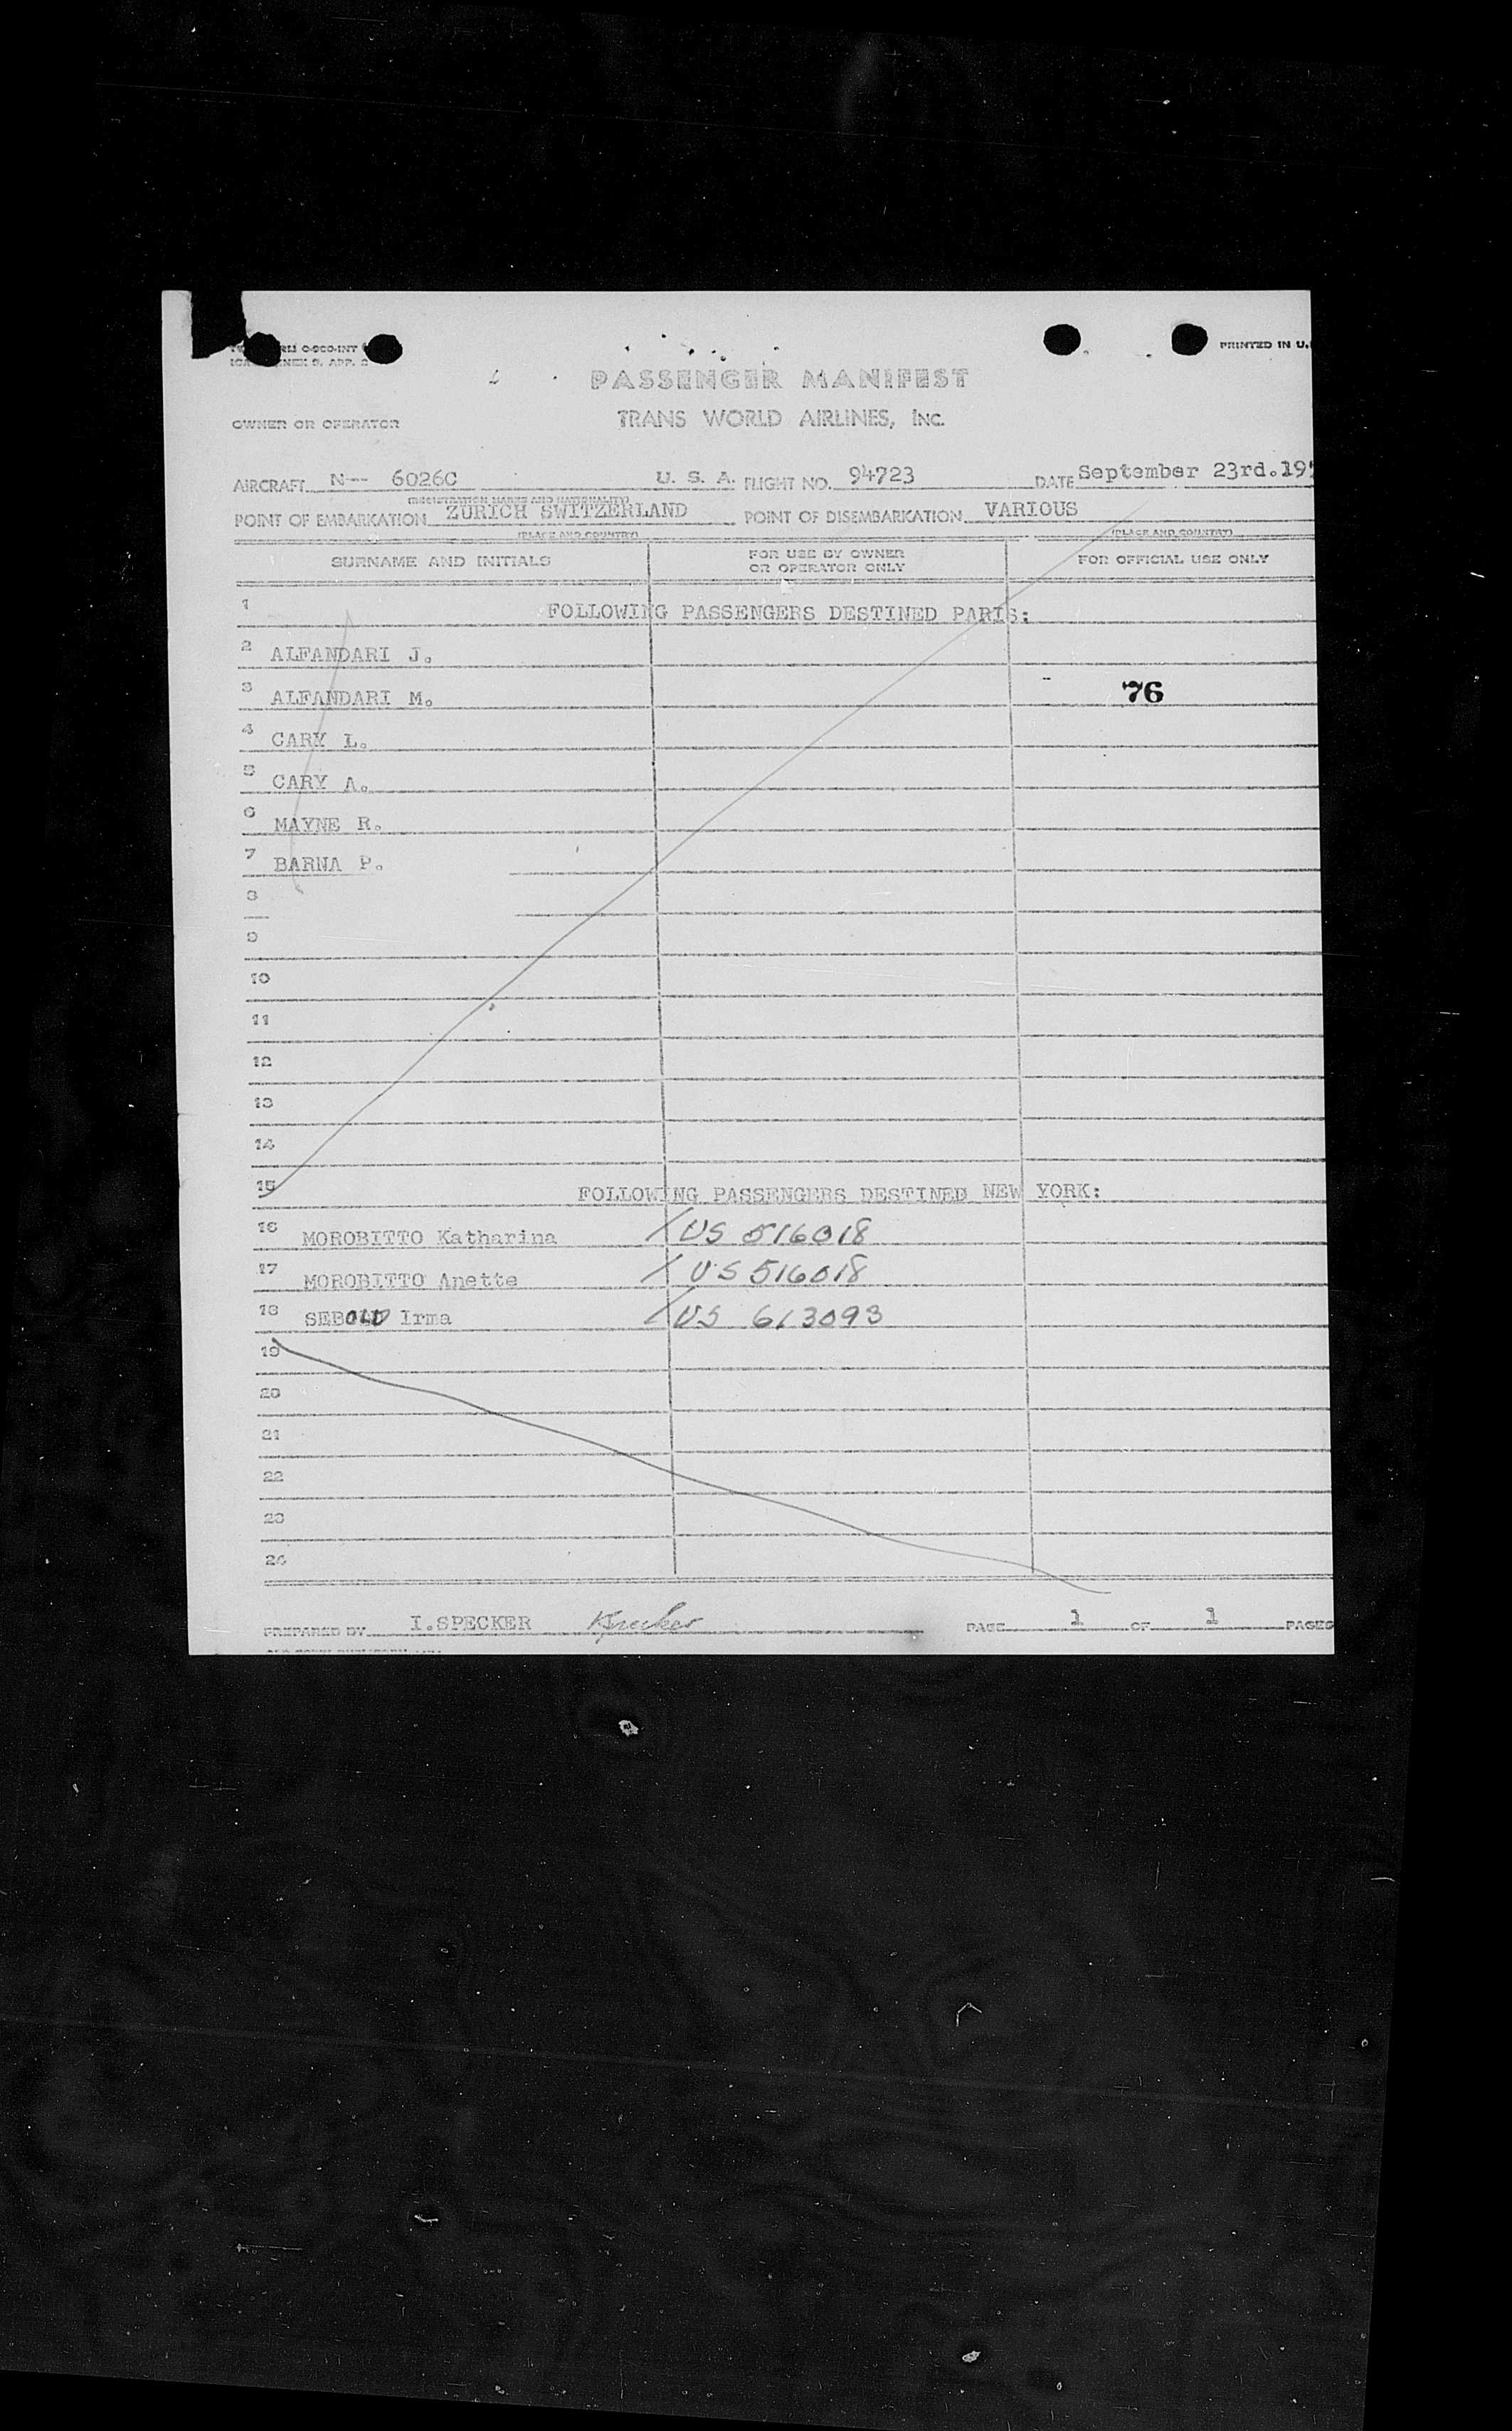 PRINTED IN U.
PASSENGER MANIFEST
TRANS WORLD AIRLINES, INC.
OWNER OR OPERATOR
AIRCRAFT N-- 6026C U. S. A. FLIGHT NO. 94723 DATE September 23rd.19
(REGISTRATION MARKS AND NATIONALITY)
POINT OF EMBARKATION ZURICH SWITZERLAND POINT OF DISEMBARKATION VARIOUS
(PLACE AND COUNTRY) (PLACE AND COUNTRY)
SURNAME AND INITIALS FOR USE BY OWNER OR OPERATOR ONLY FOR OFFICIAL USE ONLY
1 FOLLOWING PASSENGERS DESTINED PARIS:
2 ALFANDARI J.
3 ALFANDARI M. 76
4 CARY L.
5 CARY A.
6 MAYNE R.
7 BARNA P.
8
9
10
11
12
13
14
15 FOLLOWING PASSENGERS DESTINED NEW YORK:
16 MOROBITTO Katharina / US 516018
17 MOROBITTO Anette / US 516018
18 SEBOLD Irma / US 613093
19
20
21
22
23
24
PREPARED BY I.SPECKER KSpecker PAGE 1 OF 1 PAGES